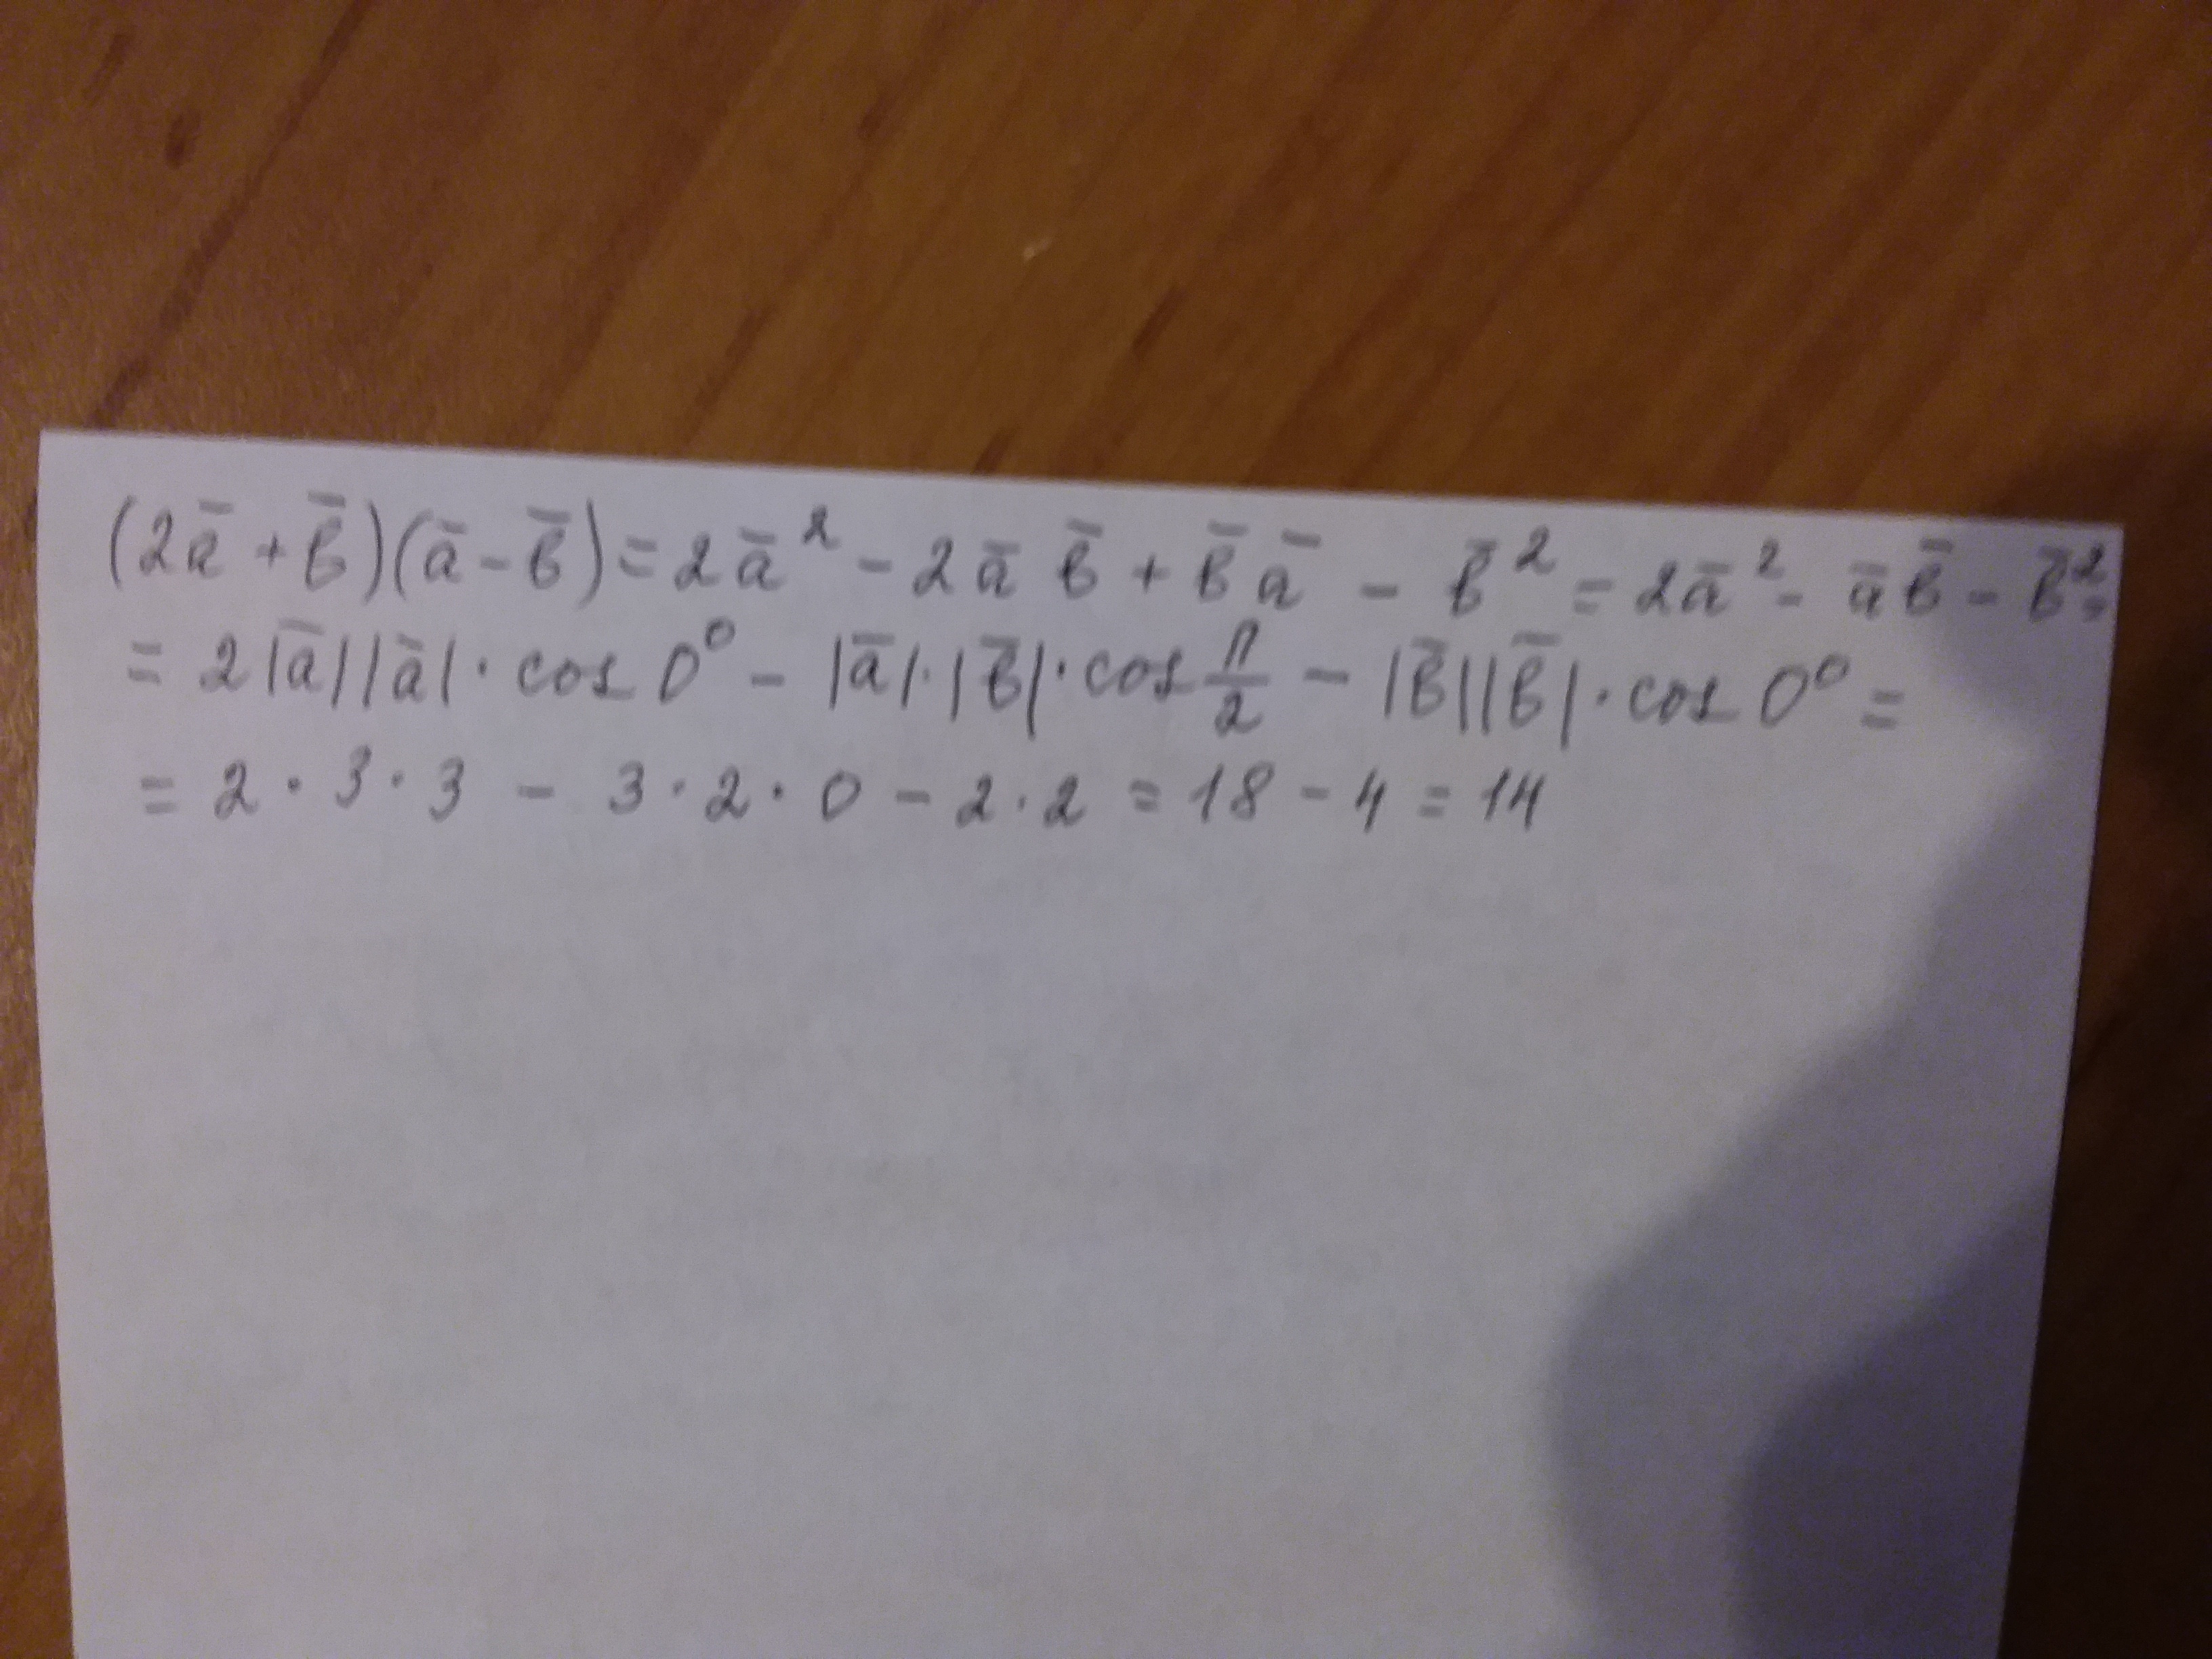 (2a̅ + b̅)(a̅ - b̅) = 2a̅² - 2a̅ b̅ + b̅ a̅ - b̅² = 2a̅² - a̅ b̅ - b̅² =
= 2|a̅||a̅| · cos 0⁰ - |a̅| · |b̅| · cos π/2 - |b̅||b̅| · cos 0⁰ =
= 2 · 3 · 3 - 3 · 2 · 0 - 2 · 2 = 18 - 4 = 14